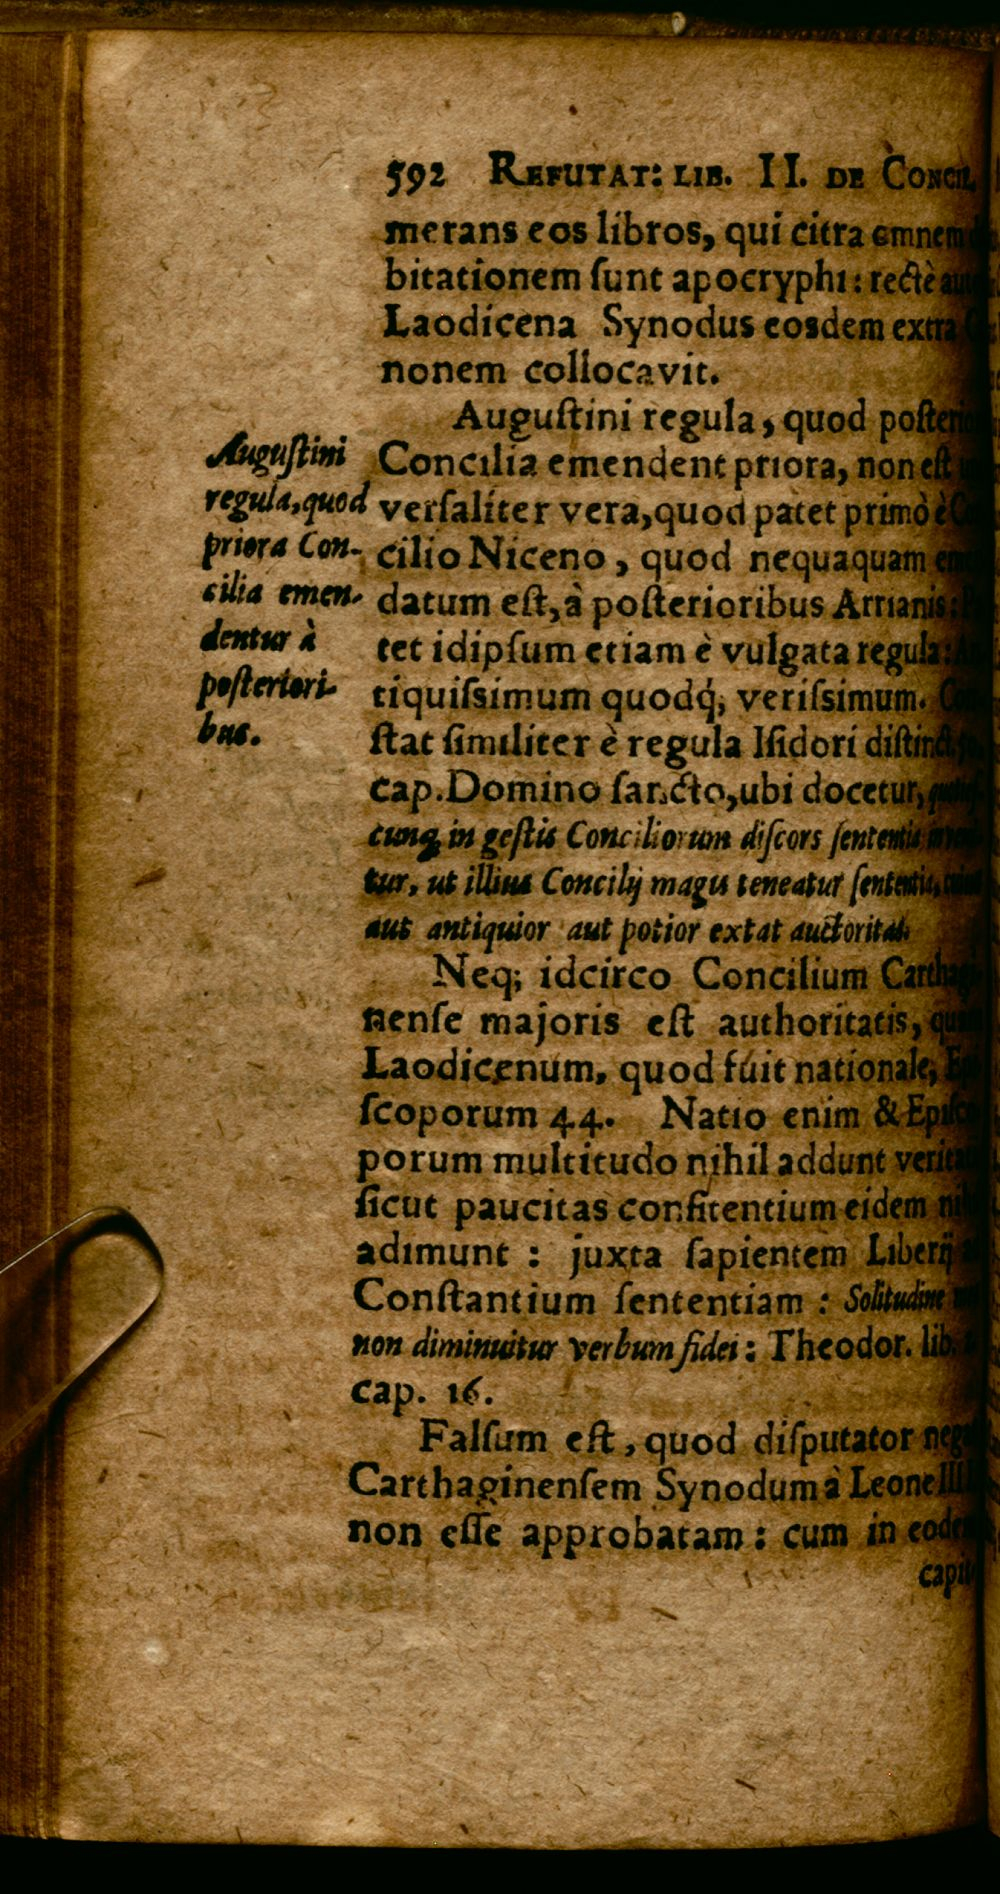 592 REFUTAT: LIB. II. DE CONCIL.
merans eos libros, qui citra omnem
bitationem ſunt apocryphi: rectè
Laodicena Synodus eosdem extra
nonem collocavit.
Auguſtini regula, quod
Concilia emendent priora, non eſt
verſaliter vera, quod patet primò è
cilio Niceno, quod nequaquam
datum eſt, à poſterioribus Arrianis:
tet idipſum etiam è vulgata regula:
tiquiſsimum quodq́; veriſsimum.
ſtat ſimiliter è regula Iſidori
cap. Domino ſancto, ubi docetur,
cunq; in geſtis Conciliorum diſcors ſententia
tur, ut illius Concilij magis teneatur ſententia,
aut antiquior aut potior extat auctoritas.
Neq; idcirco Concilium
nenſe majoris eſt authoritatis,
Laodicenum, quod fuit nationale,
ſcoporum 44. Natio enim &
porum multitudo nihil addunt
ſicut paucitas confitentium eidem
adimunt: juxta ſapientem Liberij
Conſtantium ſententiam: Solitudine
non diminuitur verbum fidei: Theodor. lib.
cap. 16.
Falſum eſt, quod diſputator
Carthaginenſem Synodum à Leone
non eſſe approbatam: cum in
Auguſtini
regula, quod
priora Con-
cilia emen-
dentur à
poſteriori-
bus.